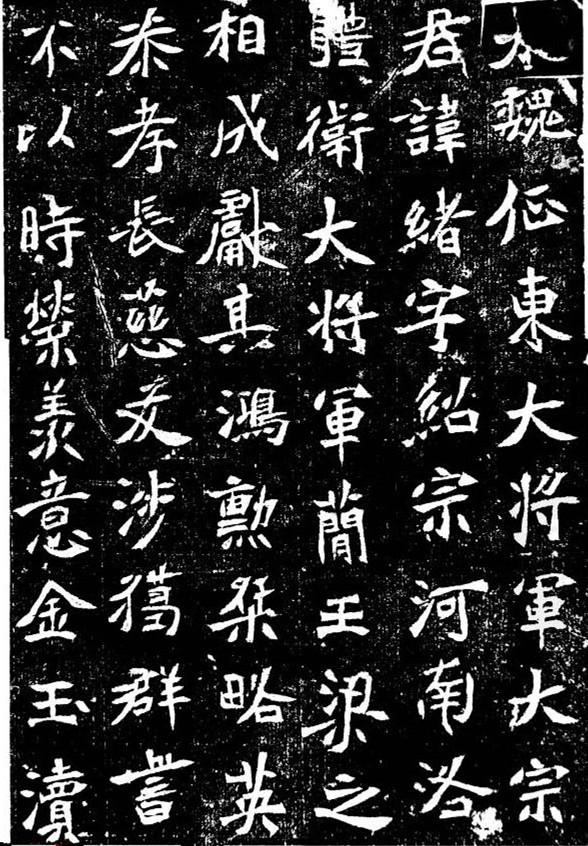 大魏征東大将軍大宗
君諱緒字紹宗河南洛
軆衛大将軍蕳王梁之
相成獻其鴻勲桀略英
恭孝長慈友涉獦群書
不以時榮羨意金玉瀆